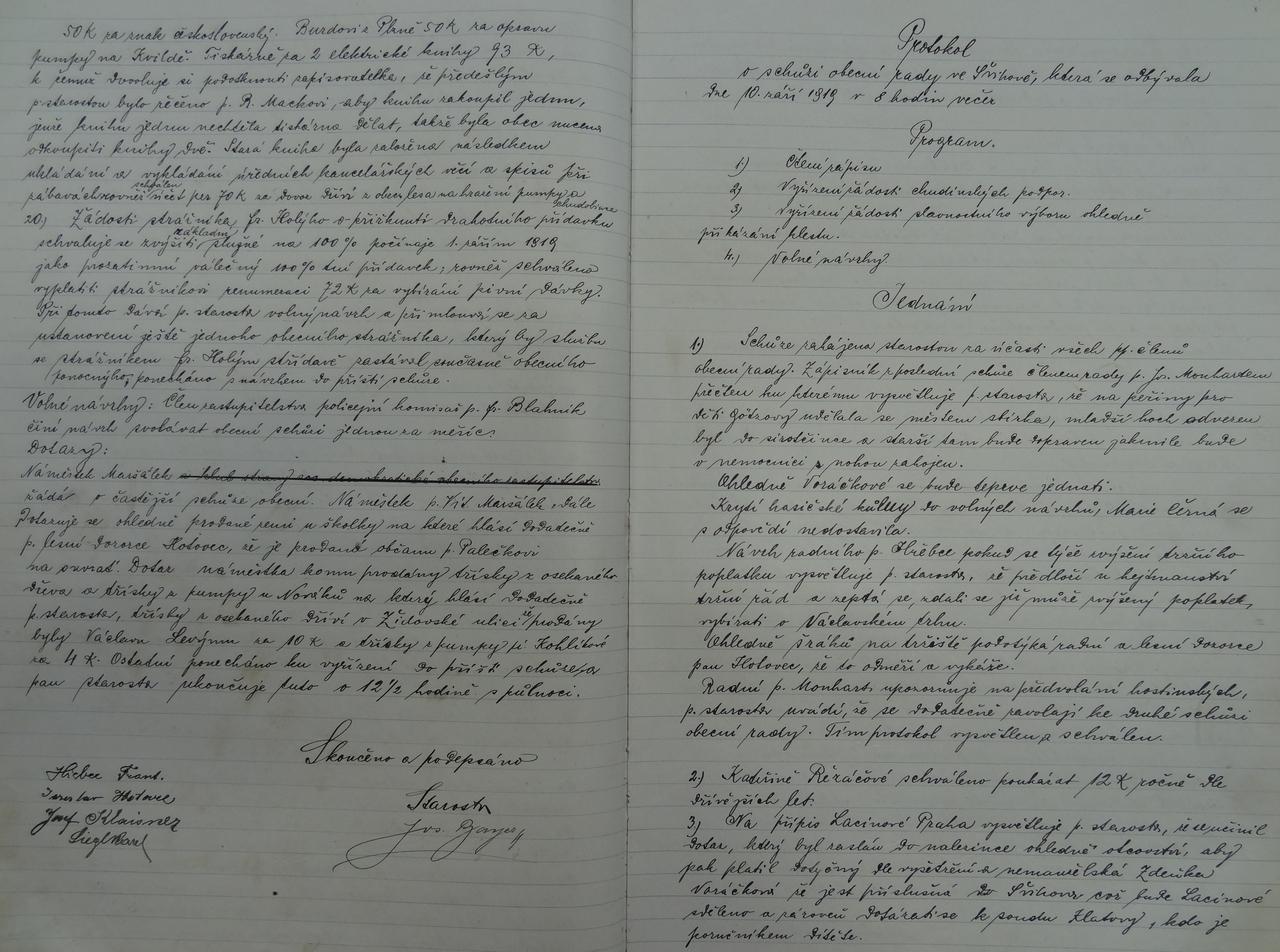 50 K za znak československý. Burdovi z Plzně 50 K za opravu
pumpy na Kvildě. Tiskárně za 2 elektrické knihy 93 K,
k čemuž dovoluje si podotknouti zapisovatelka, že předešlým
p. starostou bylo řečeno p. R. Mackovi, aby knihu zakoupil jednu,
jenže knihu jednu nechtěla tiskárna dělat, takže byla obec nucena
odkoupiti knihy dvě. Stará kniha byla založena následkem
ukládání a vykládání úředních kancelářských věcí a spisů při
zábavách rovněž schválen účet per 70 K za dovoz dříví z obec. lesa na hražení pumpy a
chudobince
20) Žádosti strážníka fr. Holýho o přiřknutí drahotního přídavku
schvaluje se zvýšiti základní služné na 100% počínaje 1. zářím 1919
jako prozatimní válečný 100% tní přídavek; rovněž schváleno
vyplatiti strážníkovi renumeraci 72 K za vybírání pivní dávky.
Při tomto dává p. starosta volný návrh a přimlouvá se za
ustanovení ještě jednoho obecního strážníka, který by službu
se strážníkem fr. Holým střídavě zastával současně obecního
ponocnýho, ponecháno s návrhem do příští schůze.
Volné návrhy: Člen zastupitelstva policejní komisař p. fr. Blahník
činí návrh svolávat obecní schůzi jednou za měsíc.
Dotazy:
Náměstek Maršálek
žádá o častější schůze obecní. Náměstek p. Vít Maršálek, dále
dotazuje se ohledně prodané zemi u školky na které hlásí dodatečně
p. lesní dozorce Hotovec, že je prodaná občanu p. Palečkovi
na osvrať. Dotaz náměstka komu prodány třísky z osekaného
dřeva a třísky z pumpy u Nováků na který hlásí dodatečně
p. starosta, třísky z osekaného dříví v Židovské ulici že prodány
byly Václavu Levýmu za 10 K a třísky z pumpy pí Kohlitové
za 4 K. Ostatní ponecháno ku vyřízení do příští schůze a
pan starosta ukončuje tuto o 12 1/2 hodině s půlnoci.
Skončeno a podepsáno
Hřebec Frant.
Jaroslav Hotovec
Josef Klaisner
Siegl Karel
Starosta
Jos.
Protokol
o schůzi obecní rady ve Švihově, která se odbývala
dne 10. září 1919 v 8 hodin večer
Program.
1) Čtení zápisu
2) Vyřízení žádosti chudinských podpor.
3) Vyřízení žádosti slavnostního výboru ohledně
přikázání klestu.
4.) Volné návrhy.
Jednání
1) Schůze zahájena starostou za účasti všech pp. členů
obecní rady. Zápisník z poslední schůze členem rady p. Jos. Monhartem
přečten ku kterému vysvětluje p. starosta, že na peřiny pro
děti Götzovy udělala se městem sbírka, mladší hoch odvezen
byl do sirotčince a starší tam bude dopraven jakmile bude
v nemocnici s nohou zahojen.
Ohledně Voráčkové se bude teprve jednati.
Krytí hasičské kůlny do volných návrhů, Marie Černá se
s odpovědí nedostavila.
Návrh radního p. Hřebce pokud se týče zvýšení tržního
poplatku vysvětluje p. starosta, že předloží u hejtmanství
tržní řád a zeptá se, zdali se již může zvýšený poplatek,
vybírati o Václavském trhu.
Ohledně šraků na tržiště podotýká radní a lesní dozorce
pan Hotovec, že to odměří a vykáže.
Radní p. Monhart, upozorňuje na předvolání hostinských,
p. starosta uvádí, že se dodatečně zavolají ke druhé schůzi
obecní rady. Tím protokol vysvětlen a schválen.
2.) Kateřině Řezáčové schváleno poukázat 12 K ročně dle
dřívějších let.
3.) Na přípis Lacinové Praha vysvětluje p. starosta, že se učinil
dotaz, který byl zaslán do nalezince ohledně otcovství, aby
pak platil dotyčný dle vyšetření a nemanželská Zdeňka
Voráčková že jest příslušná do Švihova což bude Lacinové
sděleno a zároveň dotázati se k soudu Klatovy, kdo je
poručníkem dítěte.